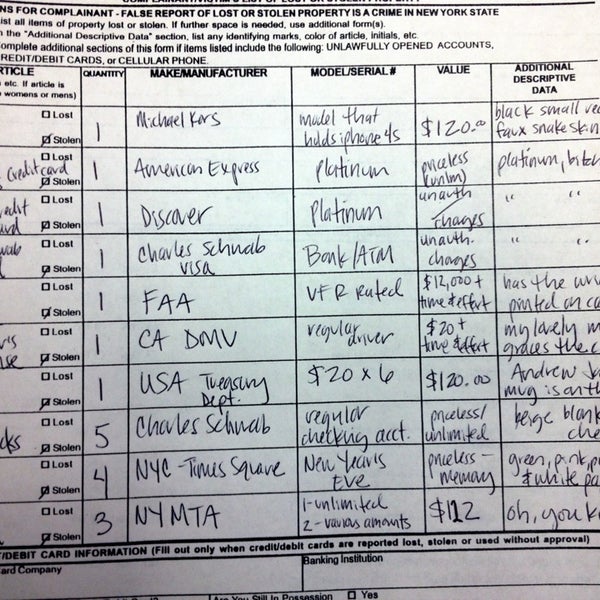 NS FOR COMPLAINANT - FALSE REPORT OF LOST OR STOLEN PROPERTY IS A CRIME IN NEW YORK STATE
ist all items of property lost or stolen. If further space is needed, use additional form(s).
n the "Additional Descriptive Data" section, list any identifying marks, color of article, initials, etc.
omplete additional sections of this form if items listed include the following: UNLAWFULLY OPENED ACCOUNTS,
REDIT/DEBIT CARDS, or CELLULAR PHONE.
RTICLE QUANTITY MAKE/MANUFACTURER MODEL/SERIAL# VALUE ADDITIONAL
etc. If article is DESCRIPTIVE
womens or mens) DATA
Lost Michael Kors model that black small
Stolen 1 holds iphone 4s $120.00 faux snakeskin
Lost American Express platinum priceless platinum,
credit card 1 (unlm)
Stolen
Lost Discover platinum unauth " "
Stolen 1 charges
Lost Charles Schwab Bank/ATM unauth. " "
Stolen 1 visa charges
Lost FAA VFR Rated $12,000+ has the
Stolen 1 time & effort printed on
Lost CA DMV regular $20+ my lovely
Stolen 1 driver time & effort graces the
Lost USA Treasury $20 x 6 $120.00 Andrew
Stolen 1 Dept. mug is on th
Lost Charles Schwab regular priceless/
Stolen 5 checking acct. unlimited
Lost NYC - Times Square New Years priceless - green, pink,
Stolen 4 Eve memory & white
Lost NY MTA 1-unlimited $112 oh, you
Stolen 3 2-various amounts
T/DEBIT CARD INFORMATION (Fill out only when credit/debit cards are reported lost, stolen or used without approval)
ard Company Banking Institution
Are You Still In Possession Yes